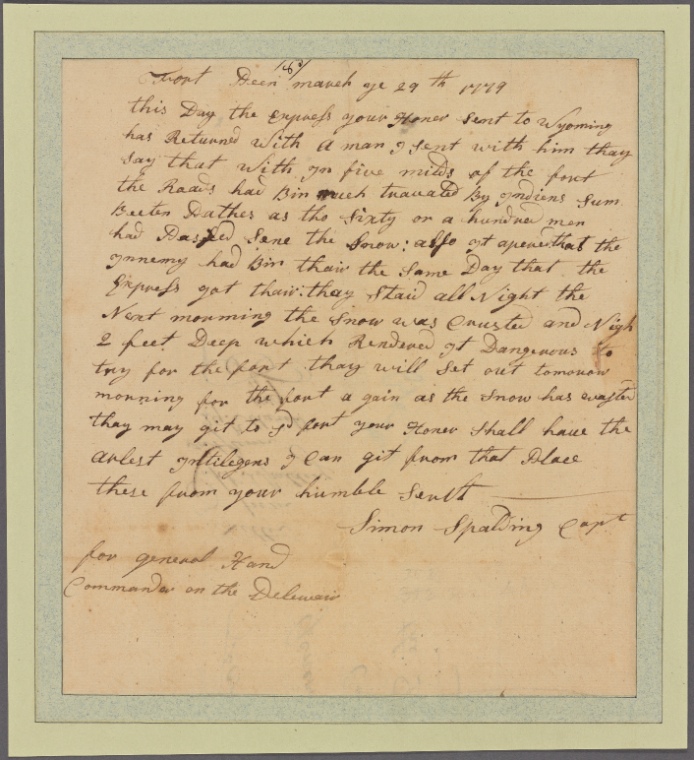 Fort Deen march ye 29th 1779
this Day the Express your Honer Sent to Wyoming
has Returned With A man I Sent with him thay
Say that With In five milds of the fort
the Roads had Bin much travaled By Indiens Sum
Beeten Pathes as tho Sixty or a hundred men
had Passed Sene the Snow: allso It apeened that the
Innemy had Bin thair the Same Day that the
Express got thair. thay Staid all Night the
Next mourning the Snow was Crusted and Nigh
2 feet Deep which Rendered It Dangerous to
try for the fort thay will Set out tomorow
morning for the fort a gain as the Snow has wasted
thay may git to sd fort your Honer Shall have the
arlest Intilegens I Can git from that Place
these from your humble Servt
Simon Spalding Capt
for general Hand
Commander on the Delewair